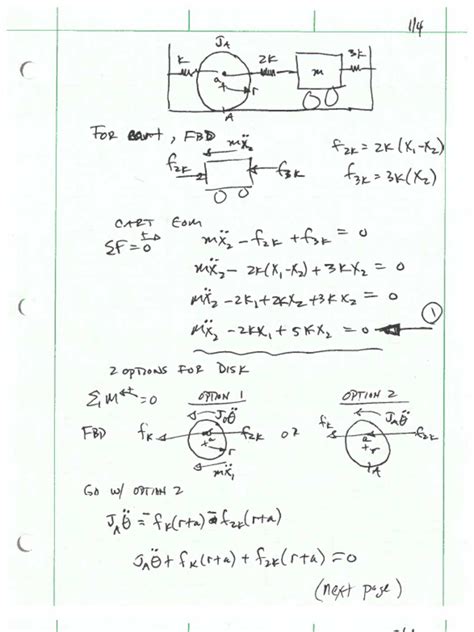 1/4
J_A
K
2K
3K
m
a
r
A
FOR cart, FBD
mẍ₂
f_2K
f_3K
f_2K = 2K(X₁-X₂)
f_3K = 3K(X₂)
CART EOM
ΣF = 0
mẍ₂ - f_2K + f_3K = 0
mẍ₂ - 2K(X₁-X₂) + 3KX₂ = 0
mẍ₂ - 2K₁ + 2KX₂ + 3KX₂ = 0
mẍ₂ - 2KX₁ + 5KX₂ = 0
1
2 OPTIONS FOR DISK
ΣM = 0
OPTION 1
OPTION 2
FBD
f_K
f_2K
a
r
mẍ₁
OR
f_K
J_Aθ̈
f_2K
a
r
A
GO W/ OPTION 2
J_Aθ̈ = -f_K(r+a) - f_2K(r+a)
J_Aθ̈ + f_K(r+a) + f_2K(r+a) = 0
(next page)